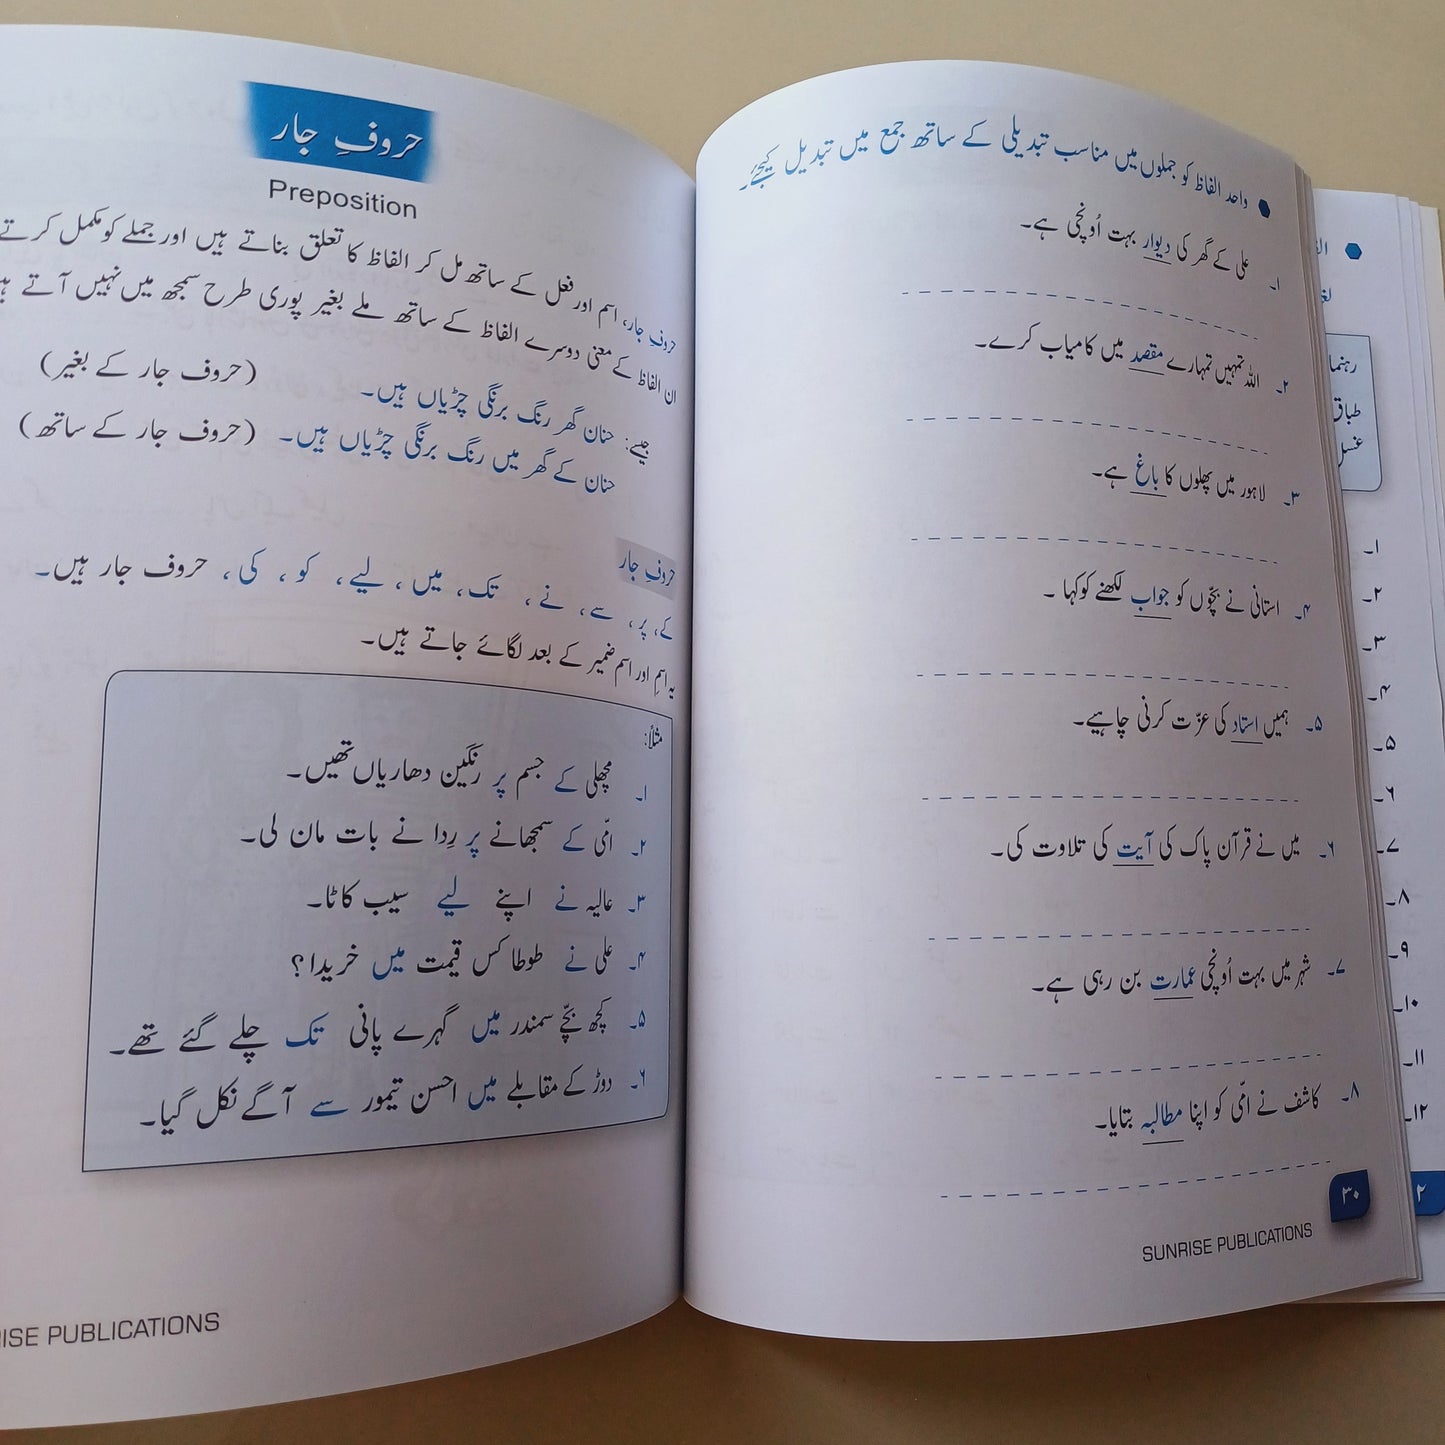 واحد الفاظ کو جملوں میں مناسب تبدیلی کے ساتھ جمع میں تبدیل کیجئے۔
۱۔ علی کے گھر کی دیوار بہت اُونچی ہے۔
۲۔ اللہ تمہیں تمہارے مقصد میں کامیاب کرے۔
۳۔ لاہور میں پھلوں کا باغ ہے۔
۴۔ استانی نے بچّوں کو جواب لکھنے کو کہا ۔
۵۔ ہمیں استاد کی عزّت کرنی چاہیے۔
۶۔ میں نے قرآن پاک کی آیت کی تلاوت کی۔
۷۔ شہر میں بہت اُونچی عمارت بن رہی ہے۔
۸۔ کاشف نے امّی کو اپنا مطالبہ بتایا۔
۳۰
SUNRISE PUBLICATIONS
حروفِ جار
Preposition
حروفِ جار، اسم اور فعل کے ساتھ مل کر الفاظ کا تعلق بناتے ہیں اور جملے کو مکمل کرتے
ان الفاظ کے معنی دوسرے الفاظ کے ساتھ ملے بغیر پوری طرح سمجھ میں نہیں آتے
جیسے: حنان گھر رنگ برنگی چڑیاں ہیں۔ (حروف جار کے بغیر)
حنان کے گھر میں رنگ برنگی چڑیاں ہیں۔ (حروف جار کے ساتھ)
حروفِ جار
کے، پر، سے، نے، تک، میں، لیے، کو، کی، حروف جار ہیں۔
یہ اسم اور اسم ضمیر کے بعد لگائے جاتے ہیں۔
مثلاً:
۱۔ مچھلی کے جسم پر رنگین دھاریاں تھیں۔
۲۔ امّی کے سمجھانے پر رِدا نے بات مان لی۔
۳۔ عالیہ نے اپنے لیے سیب کاٹا۔
۴۔ علی نے طوطا کس قیمت میں خریدا؟
۵۔ کچھ بچّے سمندر میں گہرے پانی تک چلے گئے تھے۔
۶۔ دوڑ کے مقابلے میں احسن تیمور سے آگے نکل گیا۔
RISE PUBLICATIONS
رہنما
طباق
غسل
۱۔
۲۔
۳۔
۴۔
۵۔
۶۔
۷۔
۸۔
۹۔
۱۰۔
۱۱۔
۱۲۔
۲